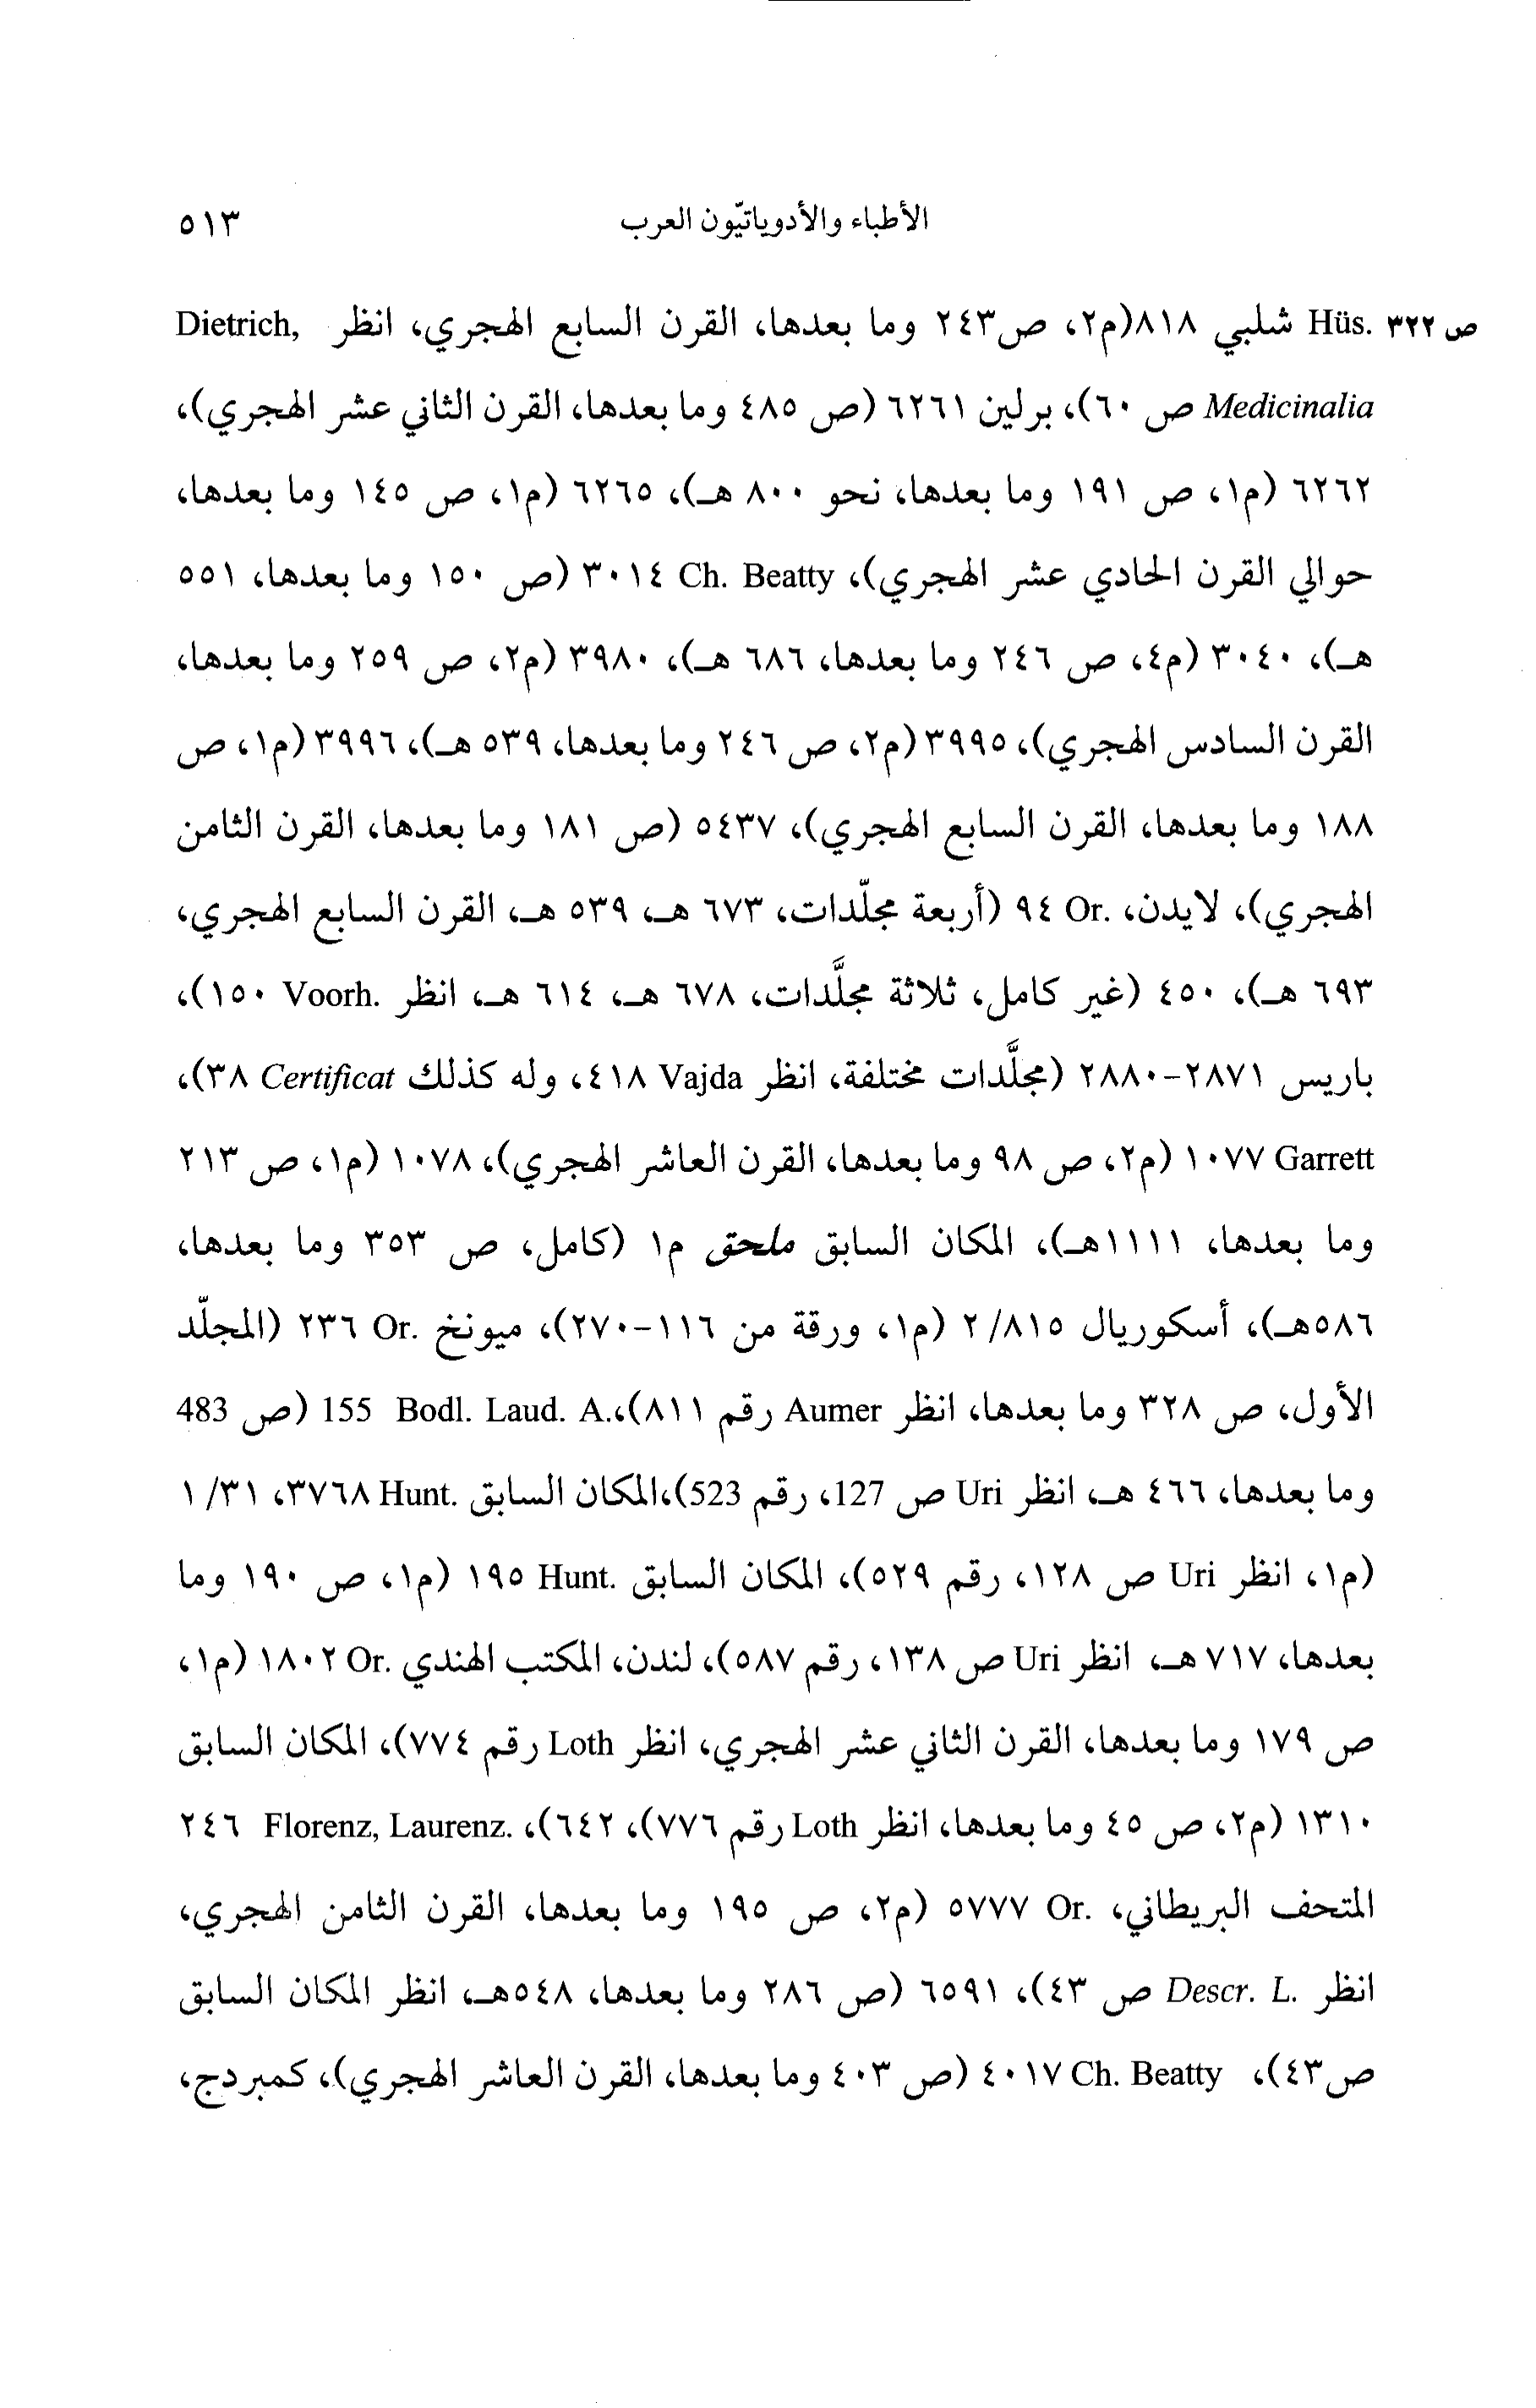 الأطباء والأدوياتيّون العرب ٥١٣
ص ٣٢٢ Hüs. شلبي ٨١٨(م٢، ص٢٤٣ وما بعدها، القرن السابع الهجري، انظر Dietrich,
Medicinalia ص ٦٠)، برلين ٦٢٦١ (ص ٤٨٥ وما بعدها، القرن الثاني عشر الهجري)،
٦٢٦٢ (م١، ص ١٩١ وما بعدها، نحو ٨٠٠ هـ)، ٦٢٦٥ (م١، ص ١٤٥ وما بعدها،
حوالي القرن الحادي عشر الهجري)، Ch. Beatty ٣٠١٤ (ص ١٥٠ وما بعدها، ٥٥١
هـ)، ٣٠٤٠ (م٤، ص ٢٤٦ وما بعدها، ٦٨٦ هـ)، ٣٩٨٠ (م٢، ص ٢٥٩ وما بعدها،
القرن السادس الهجري)، ٣٩٩٥ (م٢، ص ٢٤٦ وما بعدها، ٥٣٩ هـ)، ٣٩٩٦ (م١، ص
١٨٨ وما بعدها، القرن السابع الهجري)، ٥٤٣٧ (ص ١٨١ وما بعدها، القرن الثامن
الهجري)، لايدن، Or. ٩٤ (أربعة مجلّدات، ٦٧٣ هـ، ٥٣٩ هـ، القرن السابع الهجري،
٦٩٣ هـ)، ٤٥٠ (غير كامل، ثلاثة مجلَّدات، ٦٧٨ هـ، ٦١٤ هـ، انظر Voorh. ١٥٠)،
باريس ٢٨٧١-٢٨٨٠ (مجلَّدات مختلفة، انظر Vajda ٤١٨، وله كذلك Certificat ٣٨)،
Garrett ١٠٧٧ (م٢، ص ٩٨ وما بعدها، القرن العاشر الهجري)، ١٠٧٨ (م١، ص ٢١٣
وما بعدها، ١١١١هـ)، المكان السابق ملحق م١ (كامل، ص ٣٥٣ وما بعدها،
٥٨٦هـ)، أسكوريال ٨١٥/ ٢ (م١، ورقة من ١١٦-٢٧٠)، ميونخ Or. ٢٣٦ (المجلّد
الأول، ص ٣٢٨ وما بعدها، انظر Aumer رقم ٨١١)،Bodl. Laud. A. 155 (ص 483
وما بعدها، ٤٦٦ هـ، انظر Uri ص 127، رقم 523)،المكان السابق Hunt. ٣٧٦٨، ٣١/ ١
(م١، انظر Uri ص ١٢٨، رقم ٥٢٩)، المكان السابق Hunt. ١٩٥ (م١، ص ١٩٠ وما
بعدها، ٧١٧ هـ، انظر Uri ص ١٣٨، رقم ٥٨٧)، لندن، المكتب الهندي Or. ١٨٠٢ (م١،
ص ١٧٩ وما بعدها، القرن الثاني عشر الهجري، انظر Loth رقم ٧٧٤)، المكان السابق
١٣١٠ (م٢، ص ٤٥ وما بعدها، انظر Loth رقم ٧٧٦)، ٦٤٢)، Florenz, Laurenz. ٢٤٦
المتحف البريطاني، Or. ٥٧٧٧ (م٢، ص ١٩٥ وما بعدها، القرن الثامن الهجري،
انظر Descr. L. ص ٤٣)، ٦٥٩١ (ص ٢٨٦ وما بعدها، ٥٤٨هـ، انظر المكان السابق
ص٤٣)، Ch. Beatty ٤٠١٧ (ص ٤٠٣ وما بعدها، القرن العاشر الهجري)، كمبردج،